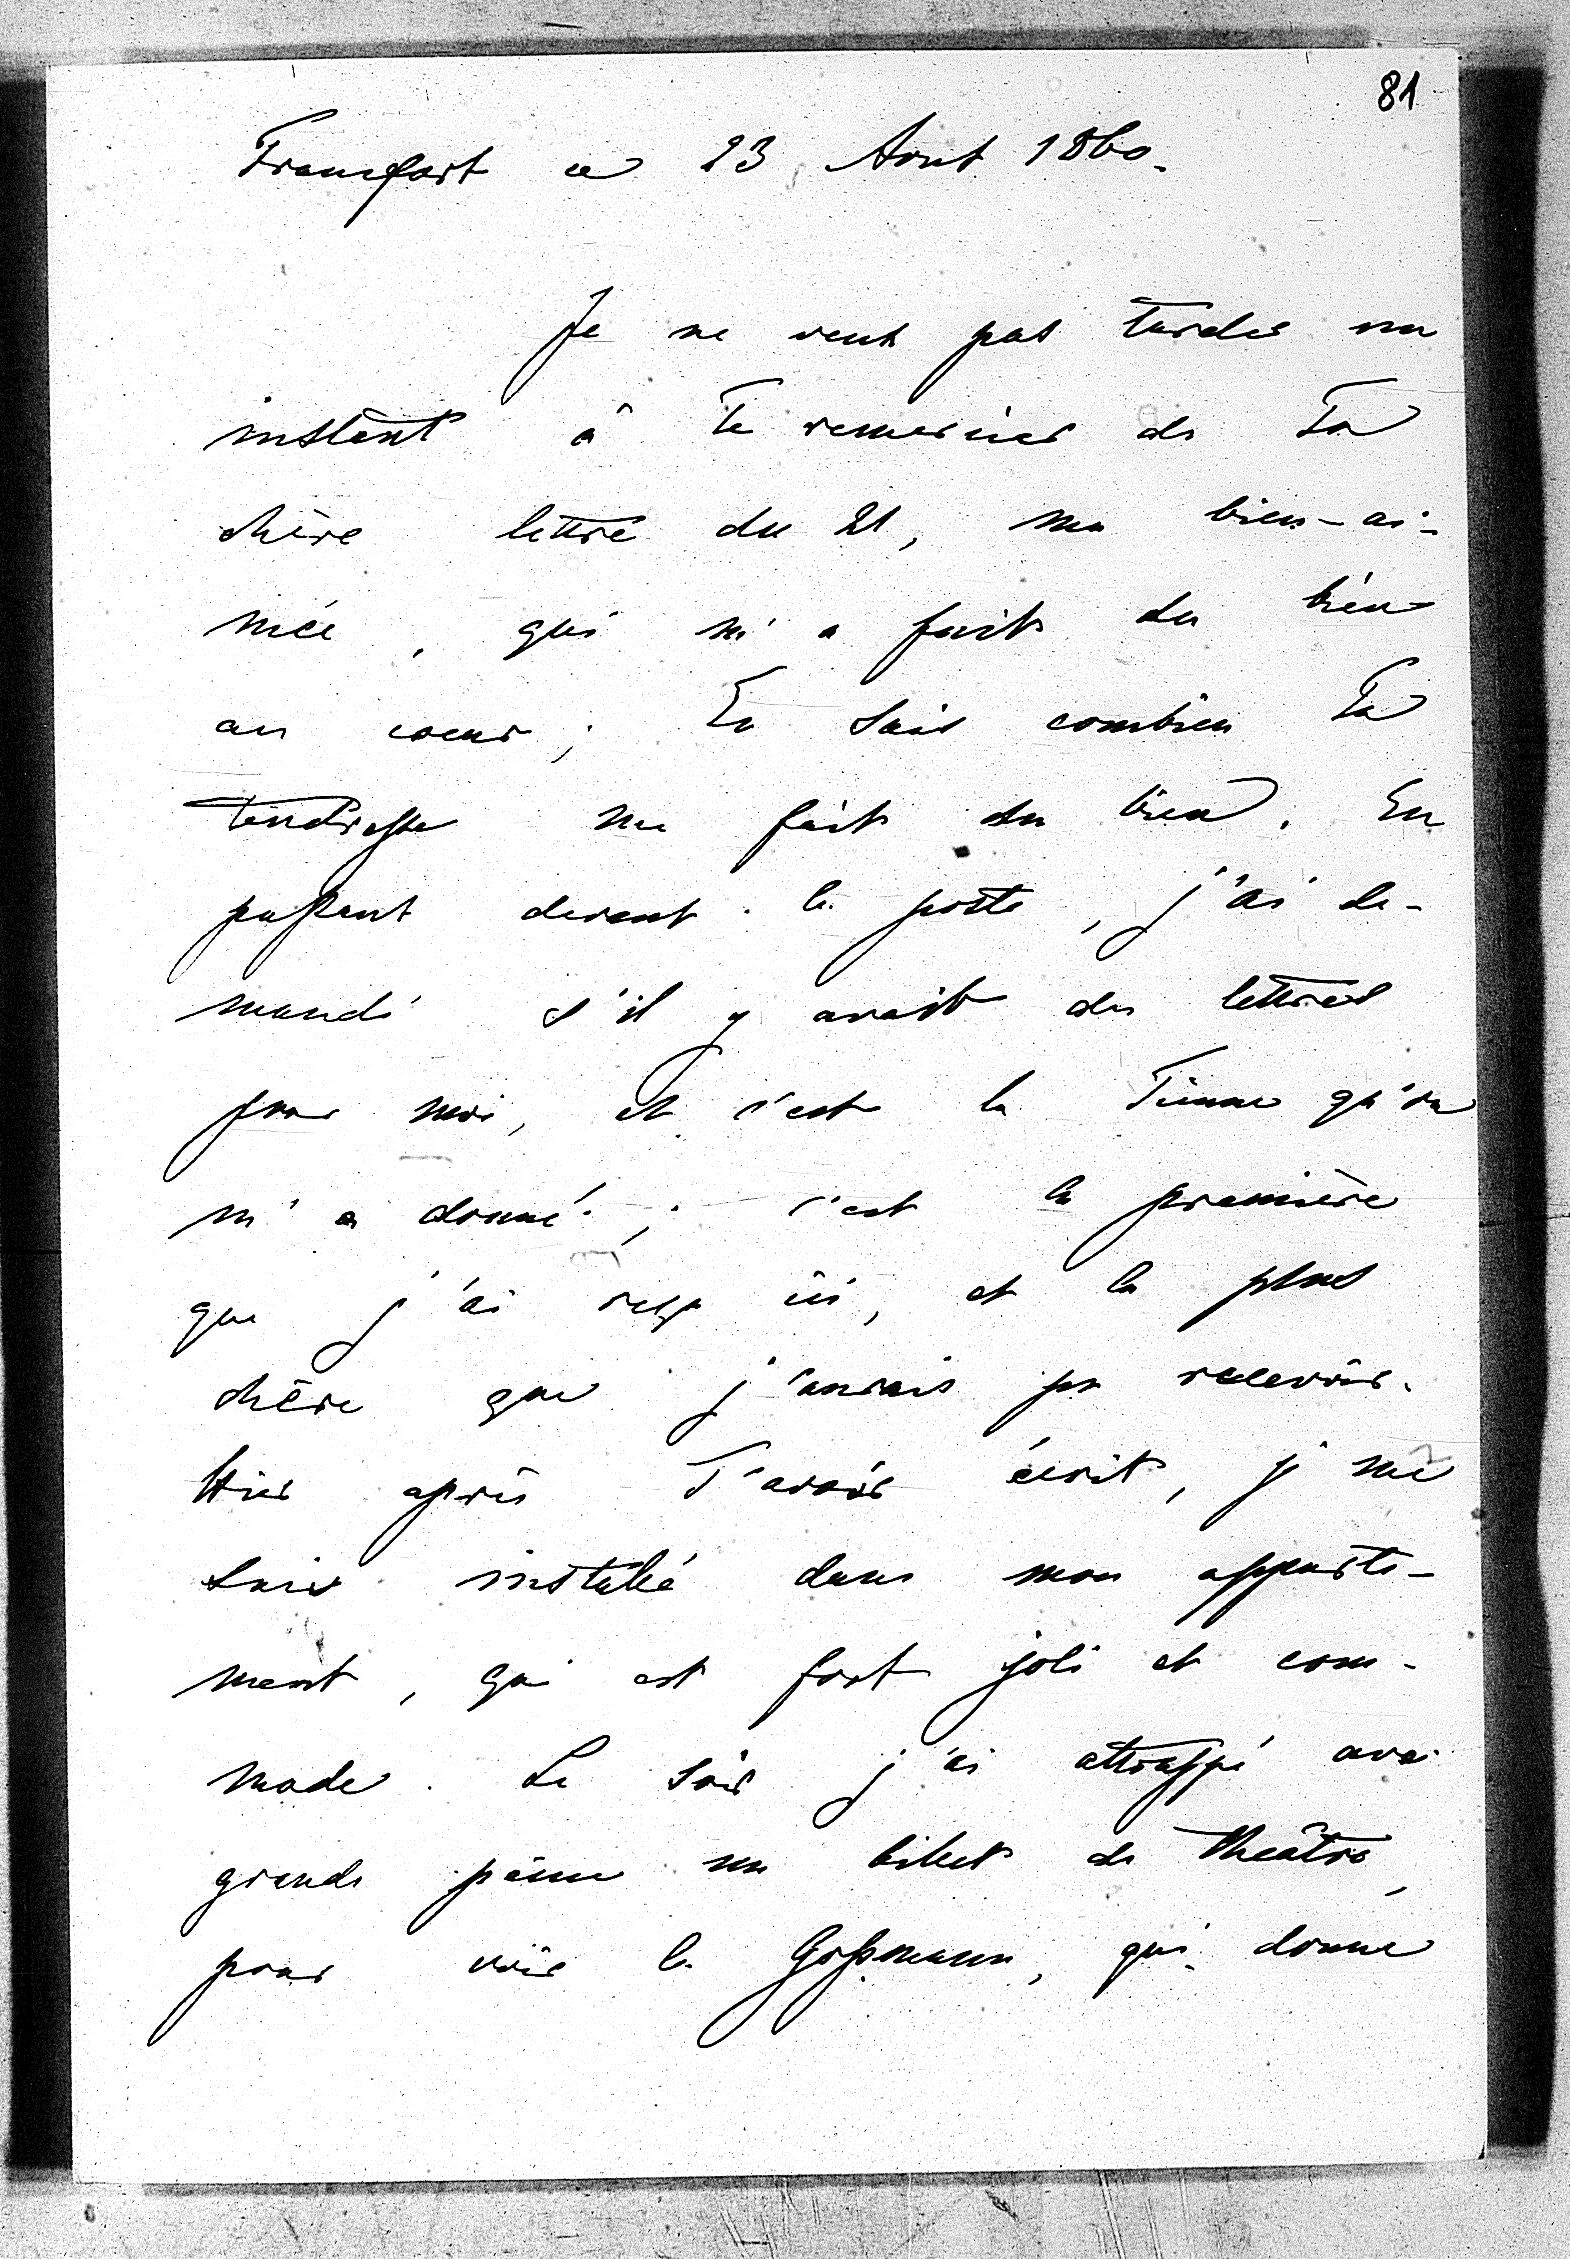 81
Francfort ce 23 Aout 1860.
Je ne veux pas tarder un
instant à Te remercier de Ta
chère lettre du 21, ma bien-ai-
mée, qui m'a fait du bien
au coeur; Tu sais combien Ta
tendresse me fait du bien. En
passant devant la poste, j'ai de-
mandé s'il y avait des lettres
pour moi, et c'est la Tienne qu'on
m'a donné; c'est la première
que j'ai reçu ici, et la plus
chère que j'aurais pu recevoir.
Hier après T'avoir écrit, je me
suis installé dans mon apparte-
ment, qui est fort joli et com-
mode. Le soir j'ai attrappé avec
grande peine un billet de théâtre,
pour voir la Goßmann, qui donne